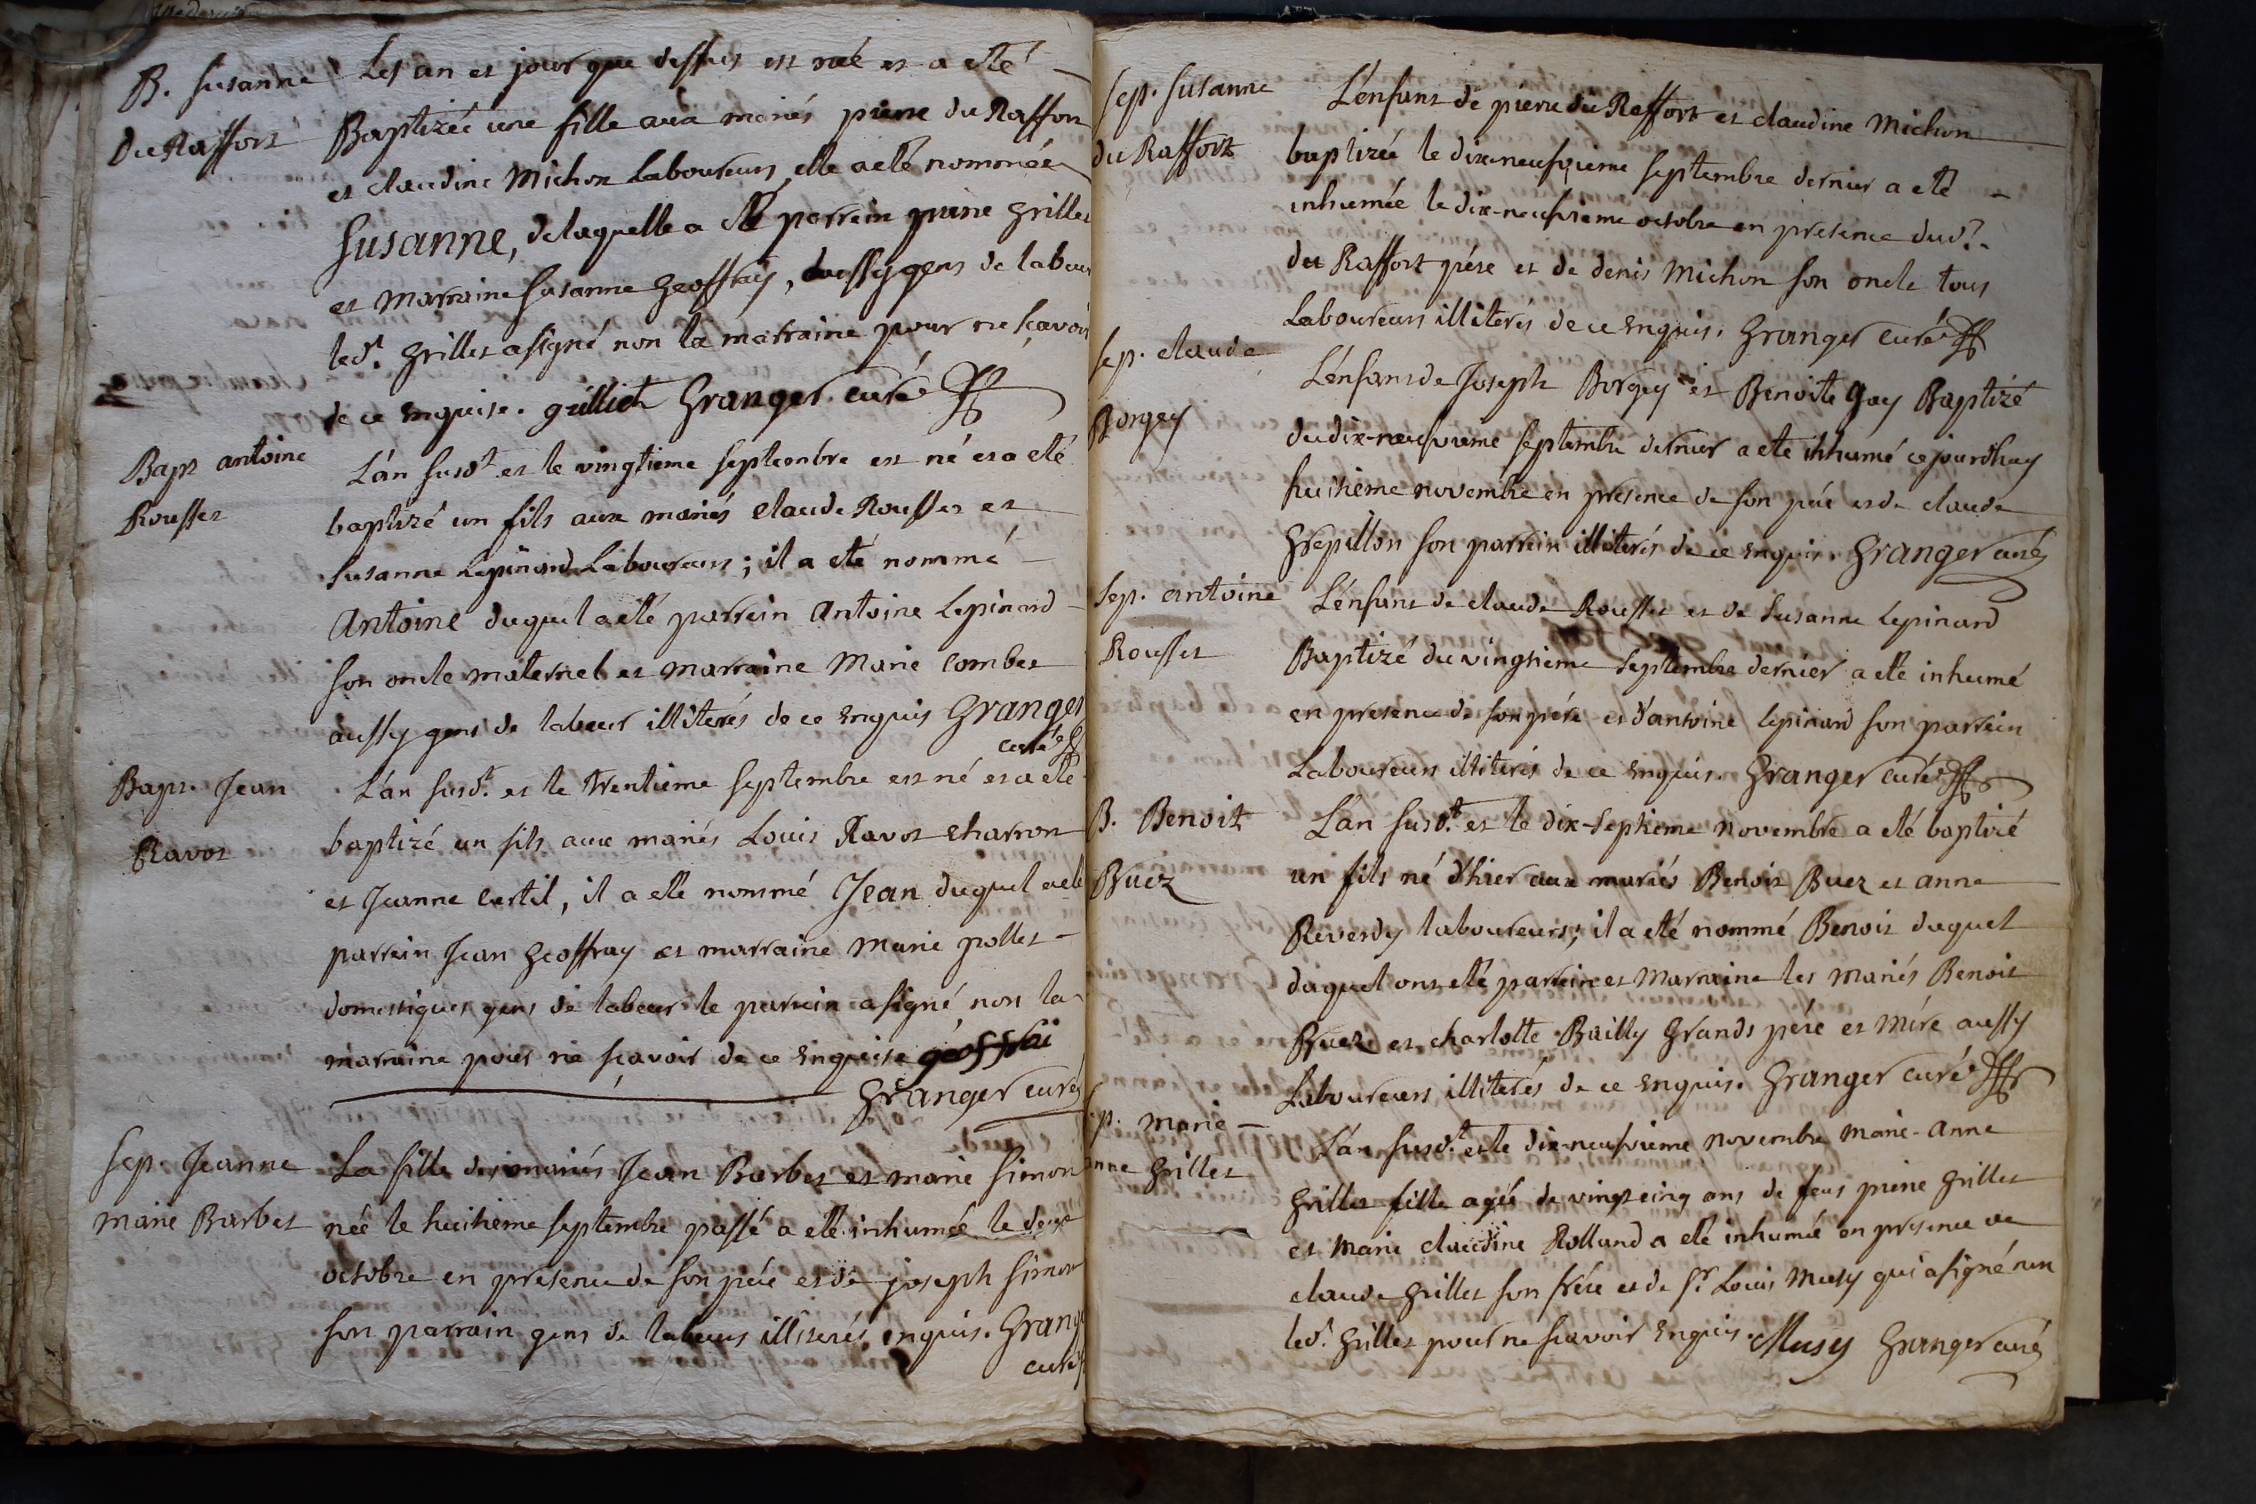 B. Susanne
Du Raffort
Les an et jour que dessus est née et a eté
Baptizée une fille aux mariés pierre du Raffort
et claudine Michon Laboureurs, elle a eté nommée
Susanne, de laquelle a eté parrein pierre Grillet
et Marraine Susanne Geoffray, aussy gens de labeur
led.t Grillet a signé non la marraine pour ne sçavoir
de ce Enquise. grilliet Granger curé
Bapt antoine
Rousset
L'an susd.t et le vingtieme septembre est né et a eté
baptizé un fils aux mariés claude Rousset et
susanne Lepinard Laboureurs; il a eté nommé
Antoine duquel a eté parrein Antoine Lepinard
son oncle maternel et marraine Marie combet
aussy gens de labeur illiterés de ce Enquis Granger
curé
Bapt. Jean
Ravot
L'an susd.t et le trentieme septembre est né et a eté
baptizé un fils aux mariés Louis Ravot charron
et Jeanne Curtil, il a eté nommé Jean duquel a eté
parrein Jean Geoffray et marraine Marie pollet
domestiques gens de labeur le parrein a signé, non la
marraine pour ne sçavoir de ce Enquise geoffrai
Granger curé
Sep. Jeanne
marie Barbet
La fille des mariés Jean Barbet et marie Simon
née le huitieme septembre passé a eté inhumée le deux
octobre en presence de son pére et de joseph Simon
son parrain gens de labeurs illiterés enquis. Grang
curé
Sep. Susanne
du Raffort
L'enfant de pierre du Raffort et claudine Michon
baptizée le dix-neufvieme septembre dernier a eté
inhumée le dix-neufvieme octobre en presence dud.t
du Raffort pére et de denis Michon son oncle tous
Laboureurs illiterés de ce Enquis. Granger curé
Sep. claude
Borgey
L'enfant de Joseph Borgey et Benoite Gay Baptizé
du dix-neufvieme septembre dernier a eté inhumé ce jourdhuy
huitième novembre en presence de son pére et de claude
Grepillon son parrein illiterés de ce enquis. Granger curé
Sep. antoine
Rousset
L'enfant de claude Rousset et de Susanne Lepinard
Baptizé du vingtieme Septembre dernier a eté inhumé
en presence de son pére et d'antoine lepinard son parrein
Laboureurs illiterés de ce enquis. Granger curé
B. Benoit
Buez
L'an susd.t et le dix-septieme novembre a eté baptizé
un fils né d'hier aux mariés Benoit Buez et anne
Reverdy laboureurs; il a eté nommé Benoit duquel
duquel ont eté parrein et Marraine les mariés Benoit
Buez et charlotte Bailly Grands pére et Mére aussy
Laboureurs illiterés de ce Enquis. Granger curé
Sep. marie-
anne Grillet
L'an susd.t et le dix-neufvieme novembre Marie-Anne
Grillet fille agée de vingt cinq ans de feus pierre Grillet
et Marie claudine Rolland a eté inhumée en presence de
claude Grillet son frére et de S.r Louis Musy qui a signé non
led.t Grillet pour ne sçavoir Enquis. Musy Granger curé